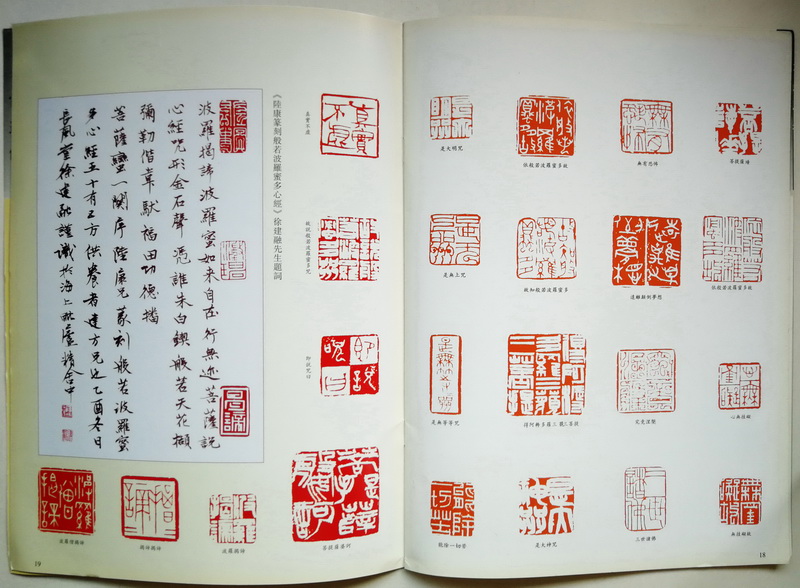 菩提薩埵
依般若波羅蜜多故
心無掛礙
無掛礙故
無有恐怖
遠離顛倒夢想
究竟涅槃
三世諸佛
依般若波羅蜜多故
故知般若波羅蜜多
得阿耨多羅三藐三菩提
是大神咒
是大明咒
是無上咒
是無等等咒
能除一切苦
18
真實不虛
故説般若波羅蜜多咒
即説咒曰
菩提薩婆訶
《陸康篆刻般若波羅蜜多心經》徐建融先生題詞
波羅揭諦波羅蜜如来自在行無迹菩薩説
心經咒形金石聲憑誰朱白鍥般若天花擷
彌勒偕韋馱福田功德
菩薩蠻一闋序陸康兄篆刻般若波羅蜜
多心經五十有三方供養者建方兄也乙酉冬日
長風堂徐建融謹識於海上毗盧精舍中
波羅揭諦
揭諦揭諦
波羅僧揭諦
19